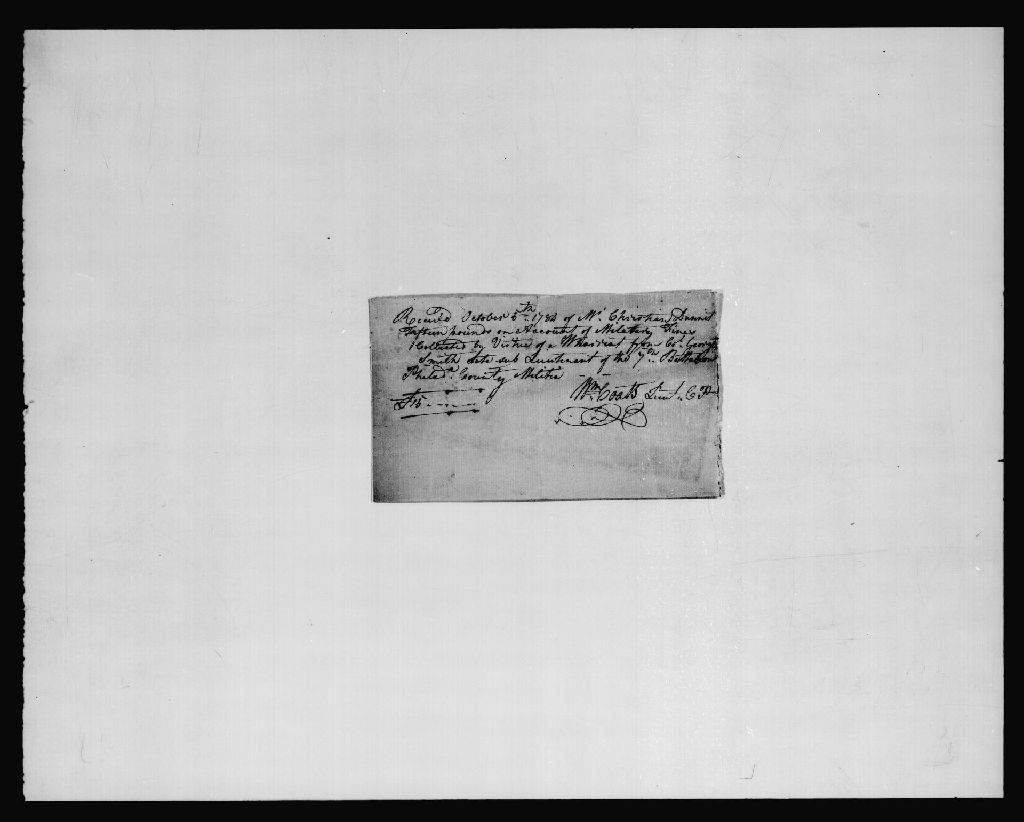 Received October 5th 1784 of Mr. Christian Dannis
Fifteen pounds on Account of Militia Fines
Collected by Virtue of a Wharrent from Col. George
Smith late sub Lieutenant of the 7th Battalion
Philada. County Militia
Wm. Coats Lieut. C P
£15